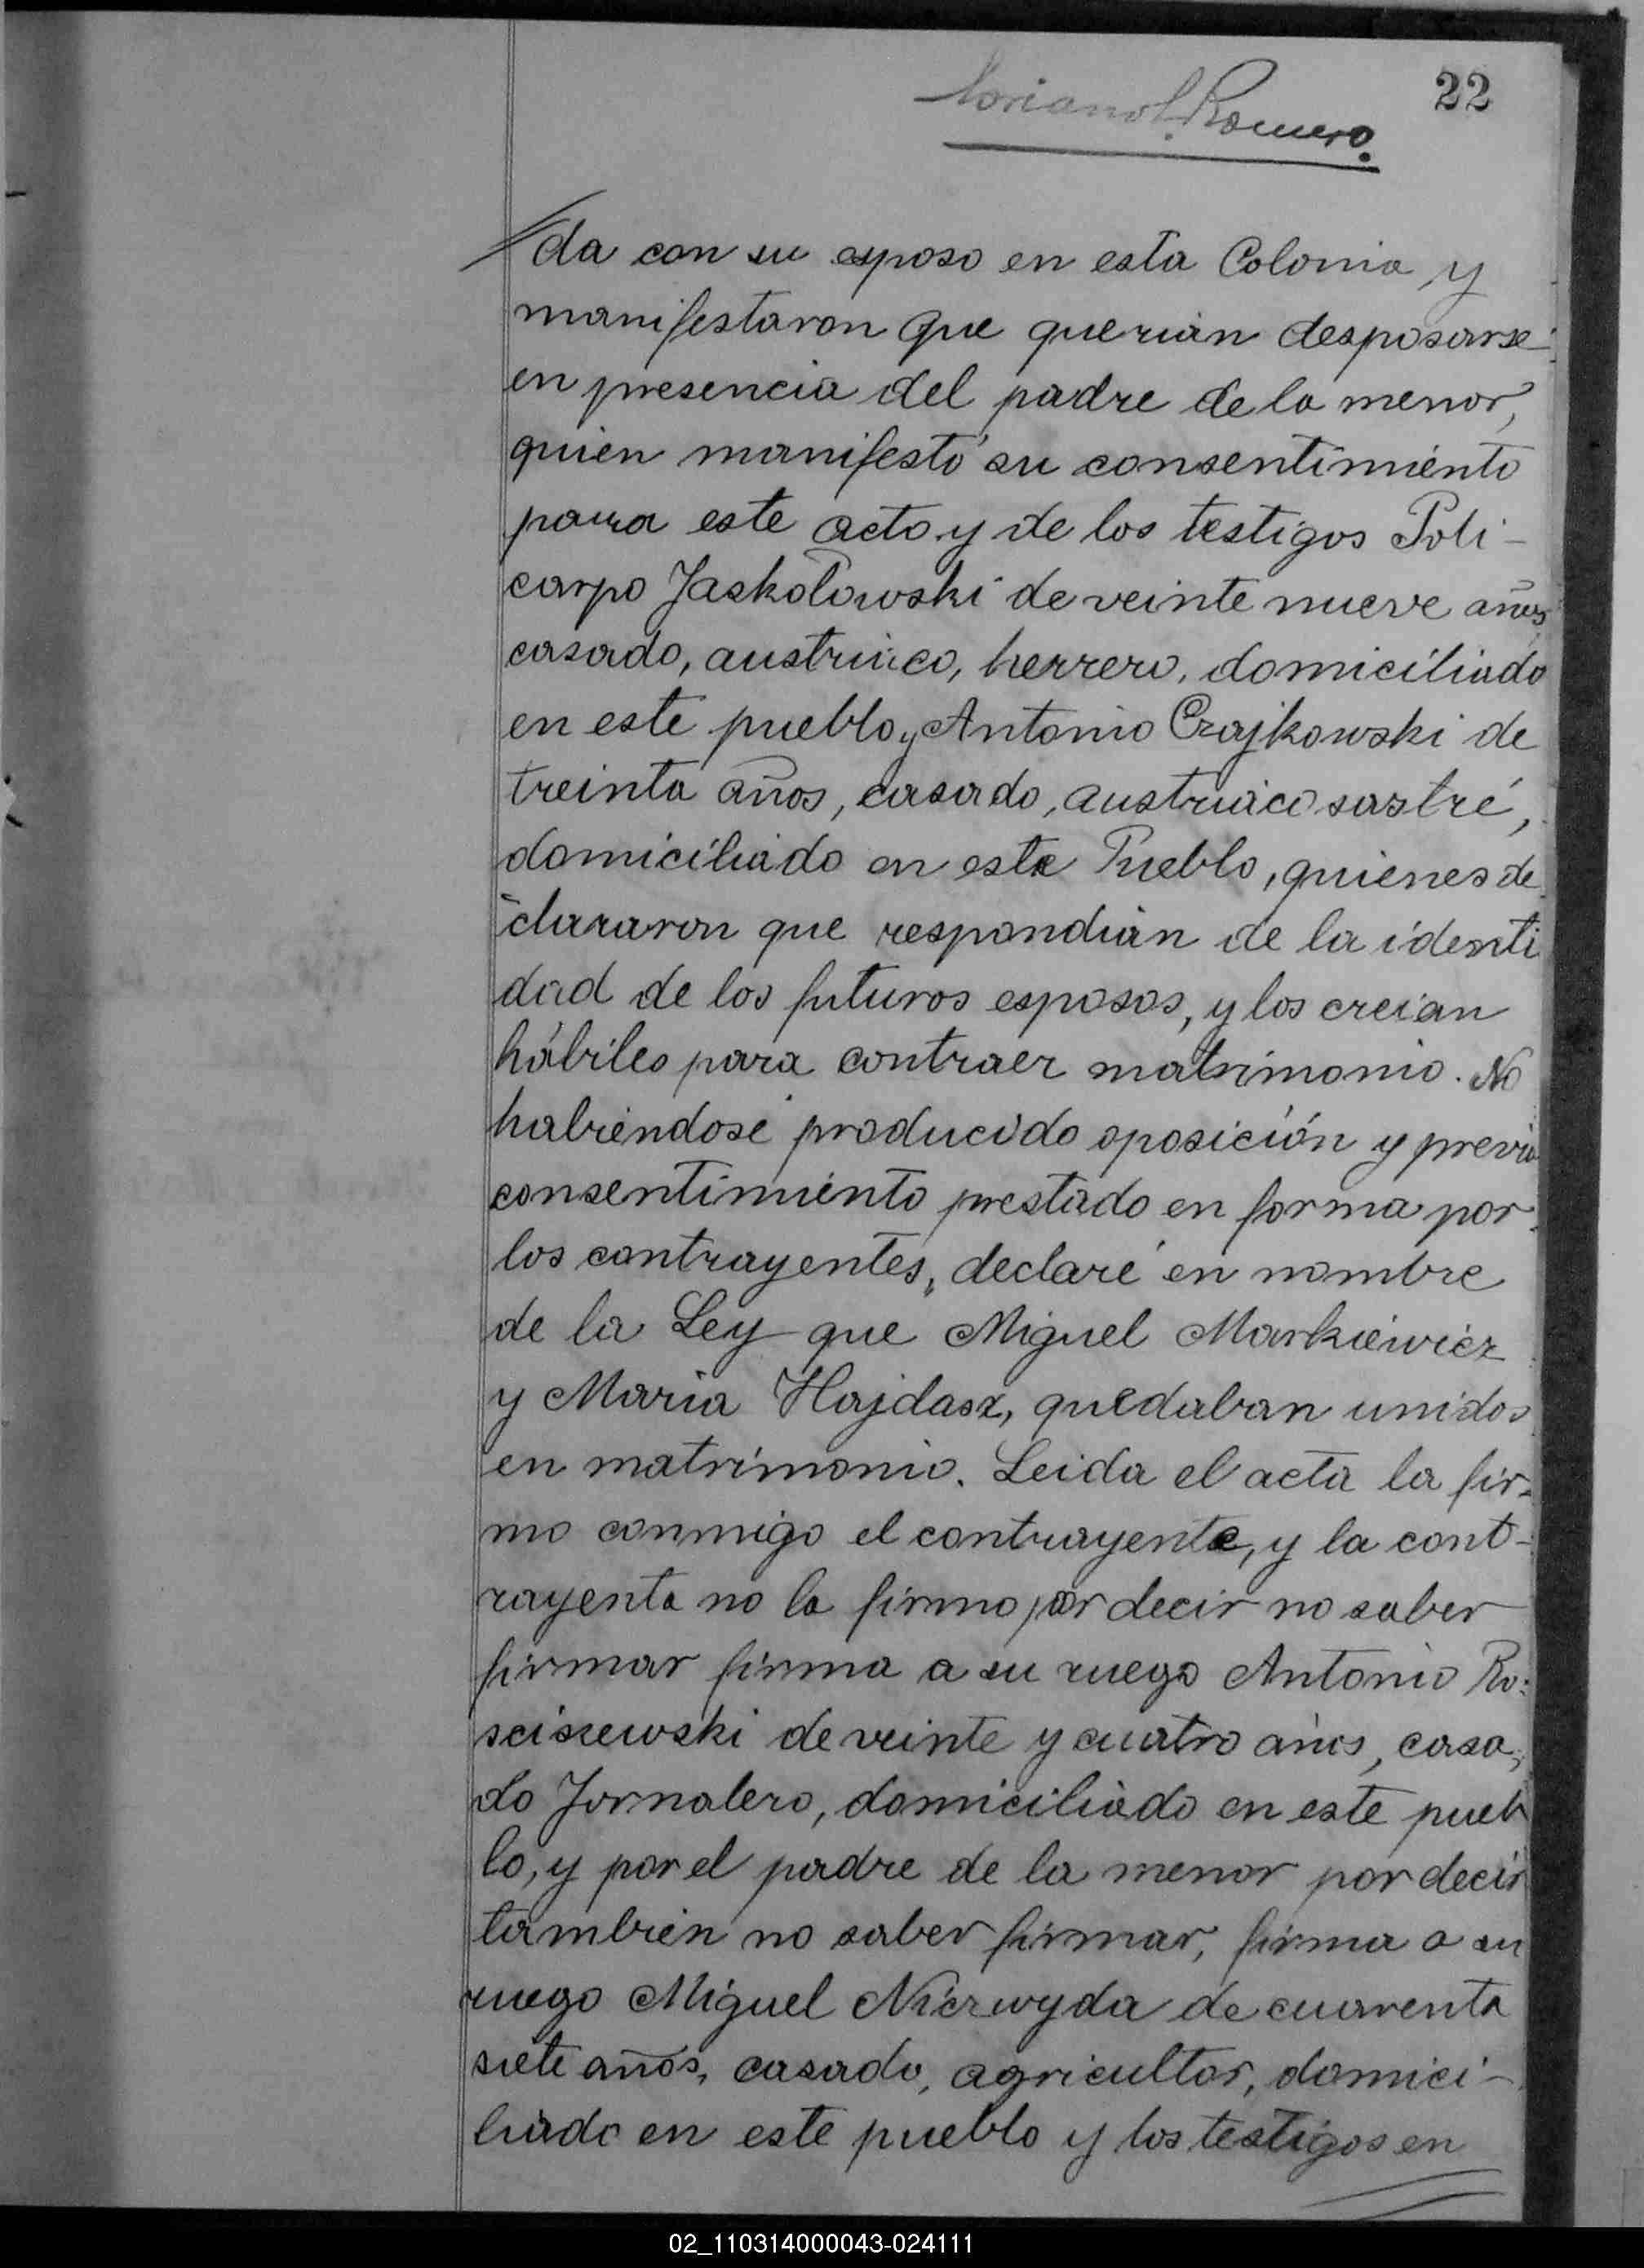 22
Romero.
da con su esposo en esta Colonia y
manifestaron que querian desposarse
en presencia del padre de la menor,
quien manifestó su consentimiento
para este acto y de los testigos Poli-
carpo Jaskolowski de veinte nueve años
casado, austriaco, herrero, domiciliado
en este pueblo y Antonio Czajkowski de
treinta años, casado, austriaco sastre,
domiciliado en este Pueblo, quienes de
clararon que respondian de la identi
dad de los futuros esposos, y los creian
hábiles para contraer matrimonio. No
habiendose producido oposición y previo
consentimiento prestado en forma por
los contrayentes, declaré en nombre
de la Ley que Miguel Markiewicz
y Maria Hajdasz, quedaban unidos
en matrimonio. Leida el acta la fir-
mo conmigo el contrayente, y la cont-
rayenta no la firmo por decir no saber
firmar firma a su ruego Antonio Ro-
sciszewski de veinte y cuatro años, casa-
do Jornalero, domiciliado en este pueb
lo, y por el padre de la menor por decir
tambien no saber firmar, firma a su
ruego Miguel Niczwyda de cuarenta
siete años, casado, agricultor, domici-
liado en este pueblo y los testigos en
02_110314000043-024111